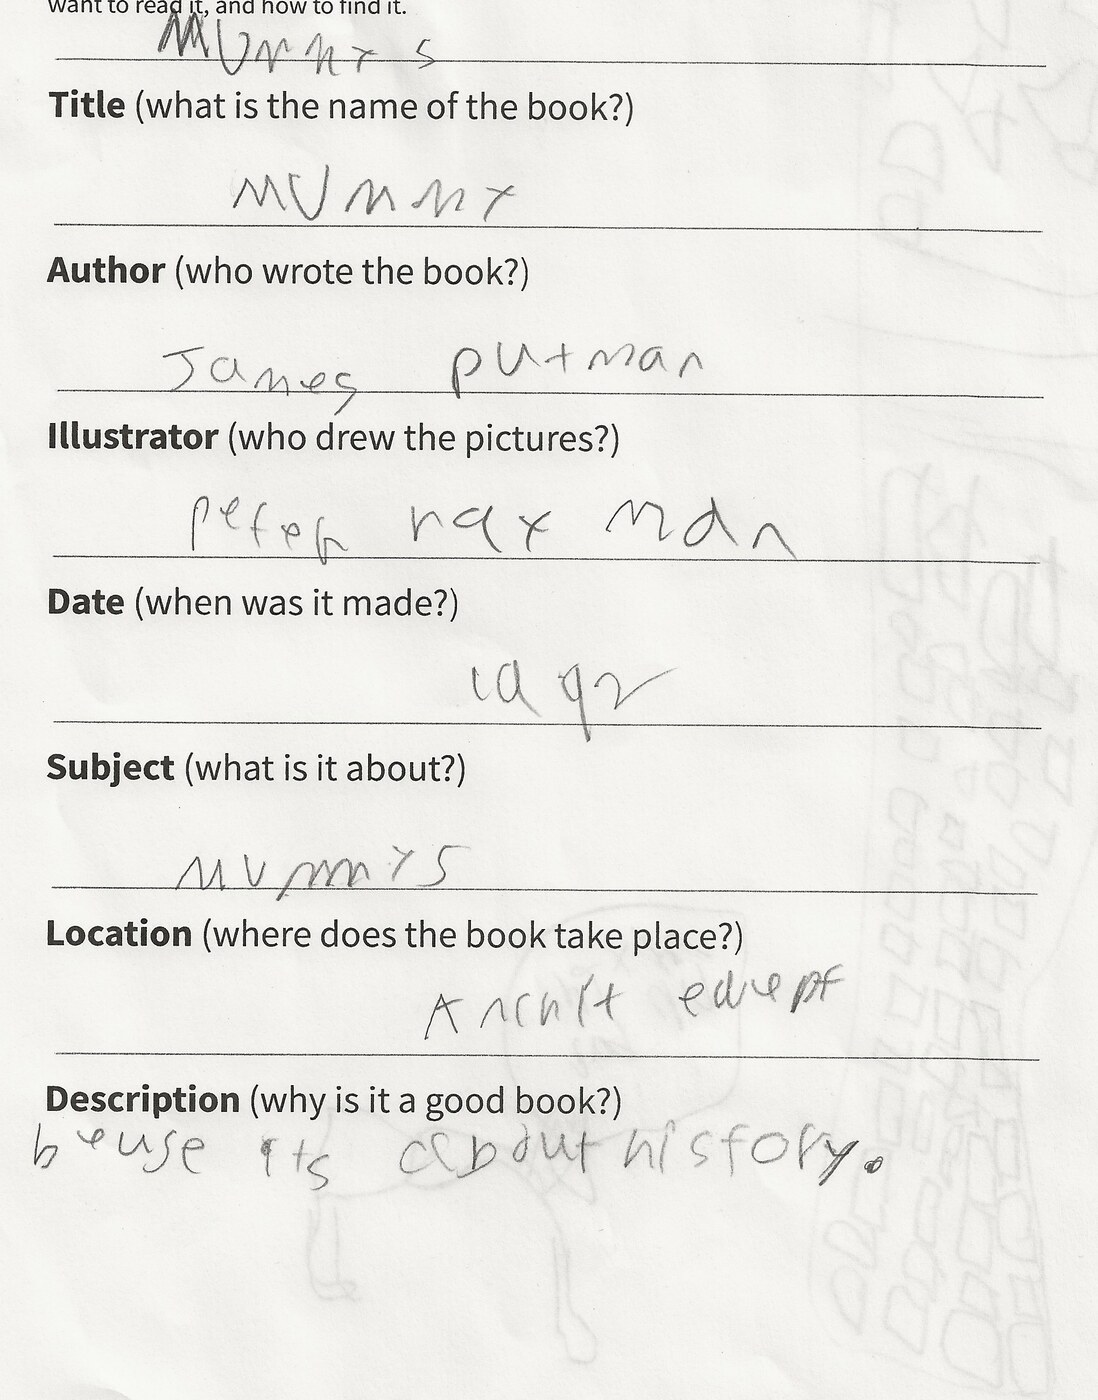 want to read it, and how to find it.
MUmmys
Title (what is the name of the book?)
MUmmy
Author (who wrote the book?)
James putman
Illustrator (who drew the pictures?)
peter hay man
Date (when was it made?)
1992
Subject (what is it about?)
MUmmys
Location (where does the book take place?)
Ancnit
Description (why is it a good book?)
beuse its about history.